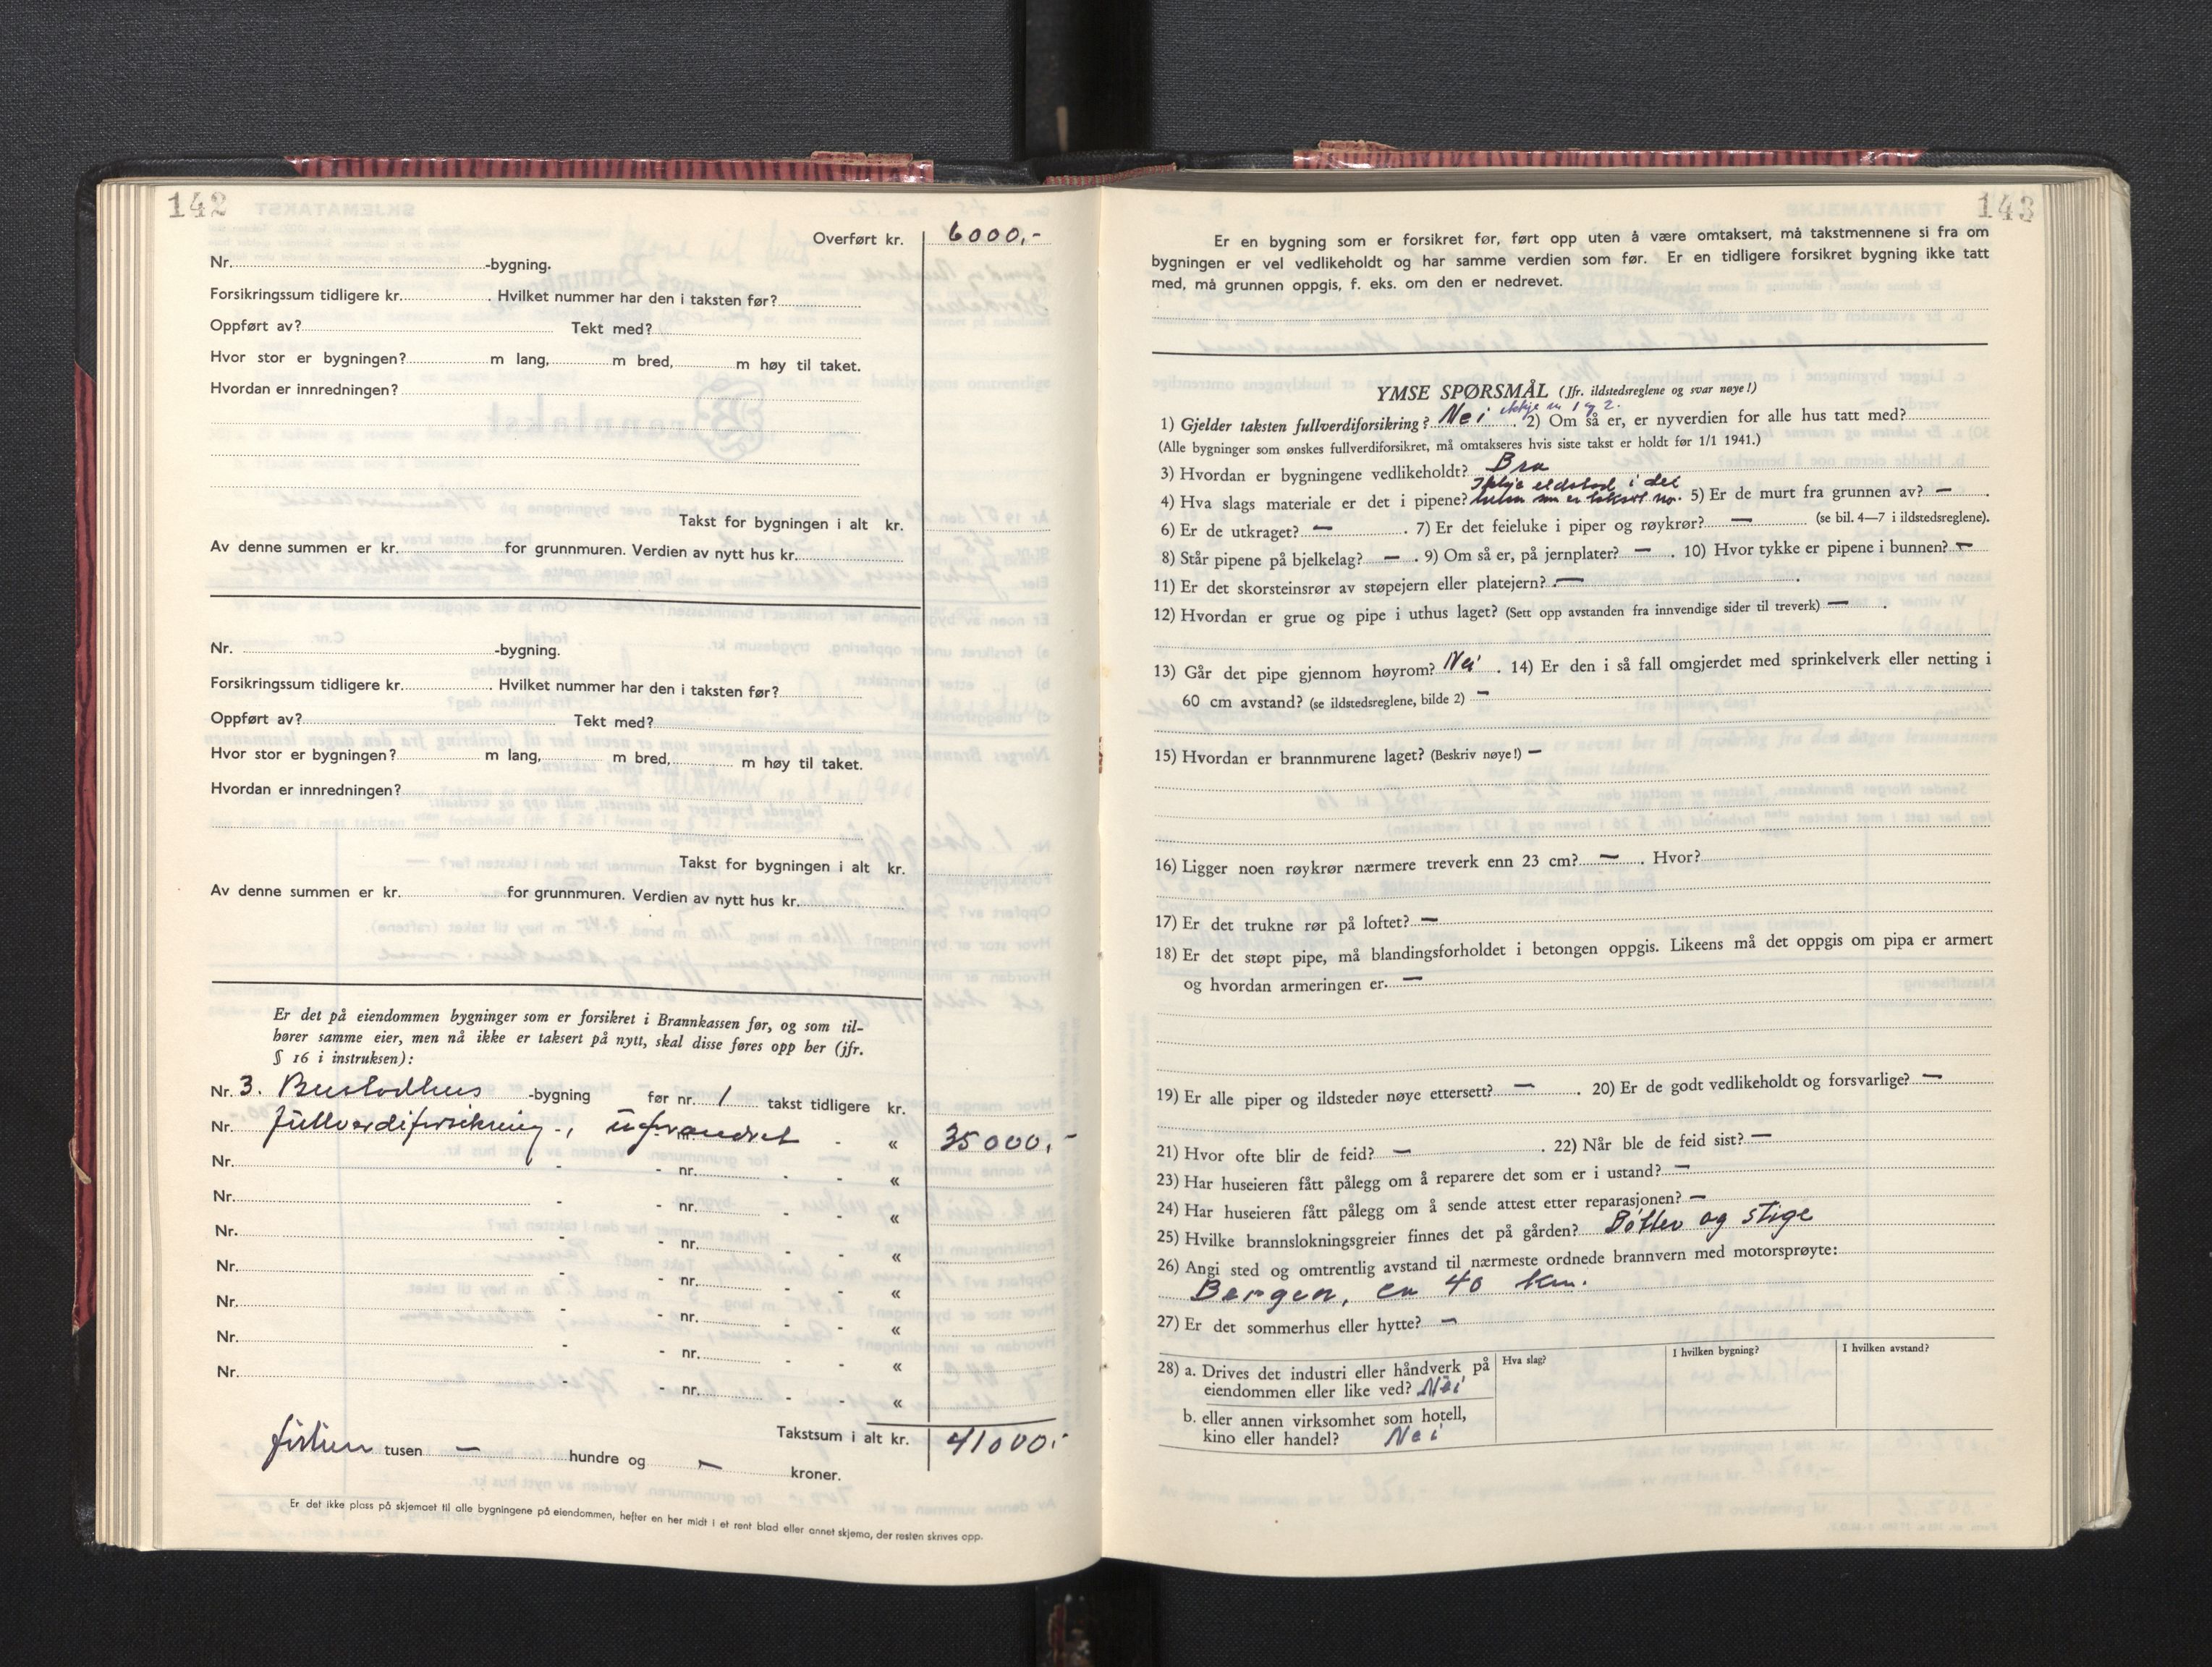 142
Overført kr. 6000,-
Nr. -bygning.
Forsikringssum tidligere kr. . Hvilket nummer har den i taksten før?
Oppført av? Tekt med?
Hvor stor er bygningen? m lang, m bred, m høy til taket.
Hvordan er innredningen?
Takst for bygningen i alt kr.
Av denne summen er kr. for grunnmuren. Verdien av nytt hus kr.
Nr. -bygning.
Forsikringssum tidligere kr. . Hvilket nummer har den i taksten før?
Oppført av? Tekt med?
Hvor stor er bygningen? m lang, m bred, m høy til taket.
Hvordan er innredningen?
Takst for bygningen i alt kr.
Av denne summen er kr. for grunnmuren. Verdien av nytt hus kr.
Er det på eiendommen bygninger som er forsikret i Brannkassen før, og som til-
hører samme eier, men nå ikke er taksert på nytt, skal disse føres opp her (jfr.
§ 16 i instruksen):
Nr. 3. Bustadhus -bygning før nr. 1 takst tidligere kr.
Nr. fullverdiforsikring -, uforandret - « 35000,-
Nr. - - nr. - - «
Nr. - - nr. - - «
Nr. - - nr. - - «
Nr. - - nr. - - «
Nr. - - nr. - - «
Nr. - - nr. - - «
Nr. - - nr. - - «
Takstsum i alt kr. 41000,-
tusen — hundre og — kroner.
Er det ikke plass på skjemaet til alle bygningene på eiendommen, hefter en her midt i et rent blad eller annet skjema, der resten skrives opp.
143
Er en bygning som er forsikret før, ført opp uten å være omtaksert, må takstmennene si fra om
bygningen er vel vedlikeholdt og har samme verdien som før. Er en tidligere forsikret bygning ikke tatt
med, må grunnen oppgis, f. eks. om den er nedrevet.
YMSE SPØRSMÅL (Jfr. ildstedsreglene og svar nøye!)
ikkje nr 1 og 2.
1) Gjelder taksten fullverdiforsikring? Nei . 2) Om så er, er nyverdien for alle hus tatt med?
(Alle bygninger som ønskes fullverdiforsikret, må omtakseres hvis siste takst er holdt før 1/1 1941.)
3) Hvordan er bygningene vedlikeholdt? Bra
Ikkje eldstad i dei
4) Hva slags materiale er det i pipene? husa som er taksert no. 5) Er de murt fra grunnen av? — .
6) Er de utkraget? — . 7) Er det feieluke i piper og røykrør? — (se bil. 4—7 i ildstedsreglene).
8) Står pipene på bjelkelag? — . 9) Om så er, på jernplater? — . 10) Hvor tykke er pipene i bunnen? —
11) Er det skorsteinsrør av støpejern eller platejern? — .
12) Hvordan er grue og pipe i uthus laget? (Sett opp avstanden fra innvendige sider til treverk) — .
13) Går det pipe gjennom høyrom? Nei . 14) Er den i så fall omgjerdet med sprinkelverk eller netting i
60 cm avstand? (se ildstedsreglene, bilde 2) —
15) Hvordan er brannmurene laget? (Beskriv nøye!) —
16) Ligger noen røykrør nærmere treverk enn 23 cm? — . Hvor?
17) Er det trukne rør på loftet? —
18) Er det støpt pipe, må blandingsforholdet i betongen oppgis. Likeens må det oppgis om pipa er armert
og hvordan armeringen er. —
19) Er alle piper og ildsteder nøye ettersett? — . 20) Er de godt vedlikeholdt og forsvarlige? —
21) Hvor ofte blir de feid? — . 22) Når ble de feid sist? —
23) Har huseieren fått pålegg om å reparere det som er i ustand? —
24) Har huseieren fått pålegg om å sende attest etter reparasjonen? —
25) Hvilke brannslokningsgreier finnes det på gården? Bøtter og stige
26) Angi sted og omtrentlig avstand til nærmeste ordnede brannvern med motorsprøyte:
Bergen, ca 40 km.
27) Er det sommerhus eller hytte? —
28) a. Drives det industri eller håndverk på
eiendommen eller like ved? Nei
Hva slag?
I hvilken bygning?
I hvilken avstand?
b. eller annen virksomhet som hotell,
kino eller handel? Nei